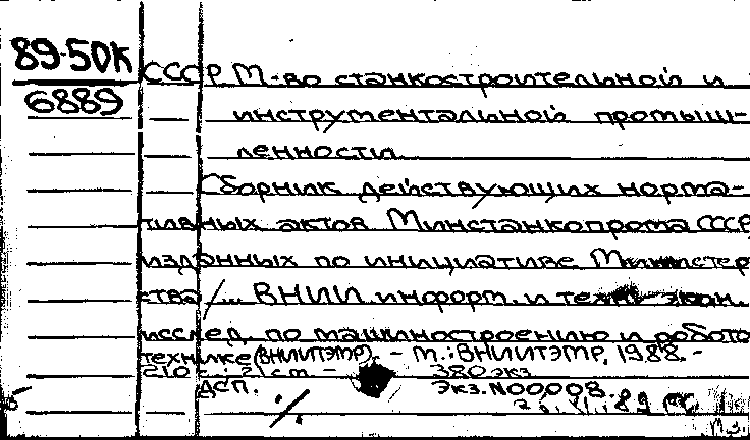 89-50К
6889
СССР М-во станкостроительной и
инструментальной промыш-
ленности.
Сборник действующих норма-
тивных актов Минстанкопрома СССР
изданных по инициативе Министер
ства / ... ВНИИ информ. и техн. экон.
исслед. по машиностроению и робото
технике (ВНИИТЭМР). - М.: ВНИИТЭМР, 1988. -
210 с.; 21 см. - 380 экз.
ДСП. Экз. N00008.
89